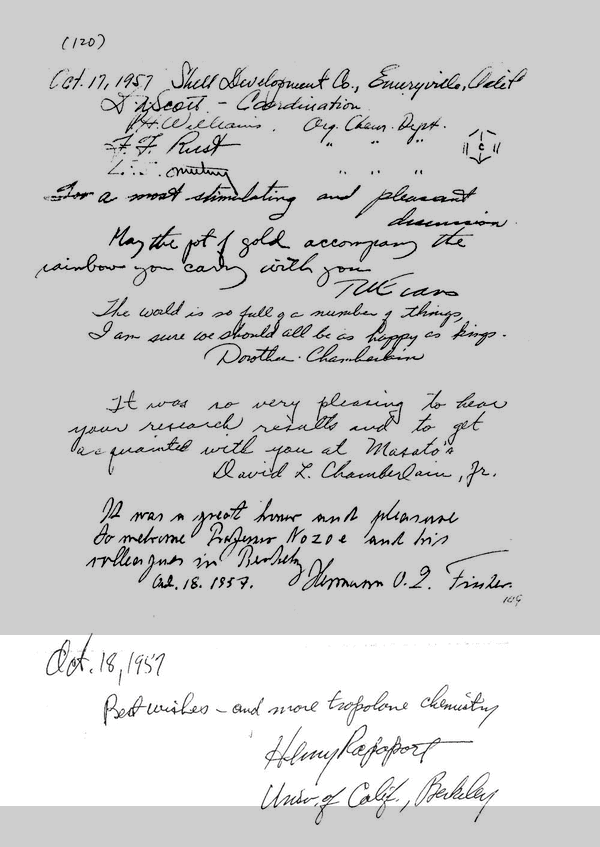 (120)
Oct. 17, 1957 Shell Development Co., Emeryville, Calif
Scott - Coordination
P.H. Williams. Org. Chem. Dept.
F. F. Rust " " "
" " "
For a most stimulating and pleasant
discussion.
May the pot of gold accompany the
rainbow you carry with you
Evans
The world is so full of a number of things,
I am sure we should all be as happy as kings.
Dorothea Chamberlain
It was so very pleasing to hear
your research results and to get
acquainted with you at Masato's
David L. Chamberlain, Jr.
It was a great honor and pleasure
to welcome Professor Nozoe and his
colleagues in Berkeley
Oct. 18. 1957. Hermann O. L. Fischer.
Oct. 18, 1957
Best wishes - and more tropolone chemistry
Henry Rapoport
Univ. of Calif., Berkeley